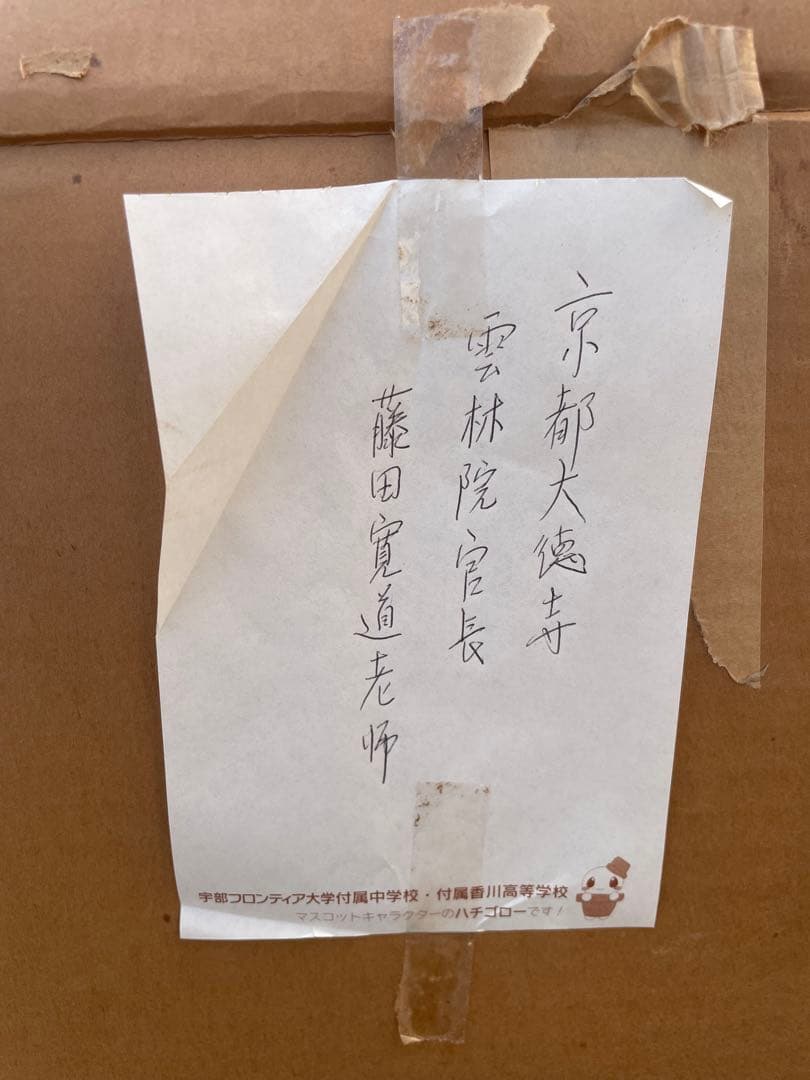 京都大徳寺
雲林院官長
藤田寛道老师
宇部フロンティア大学付属中学校・付属香川高等学校
マスコットキャラクターのハチゴローです!